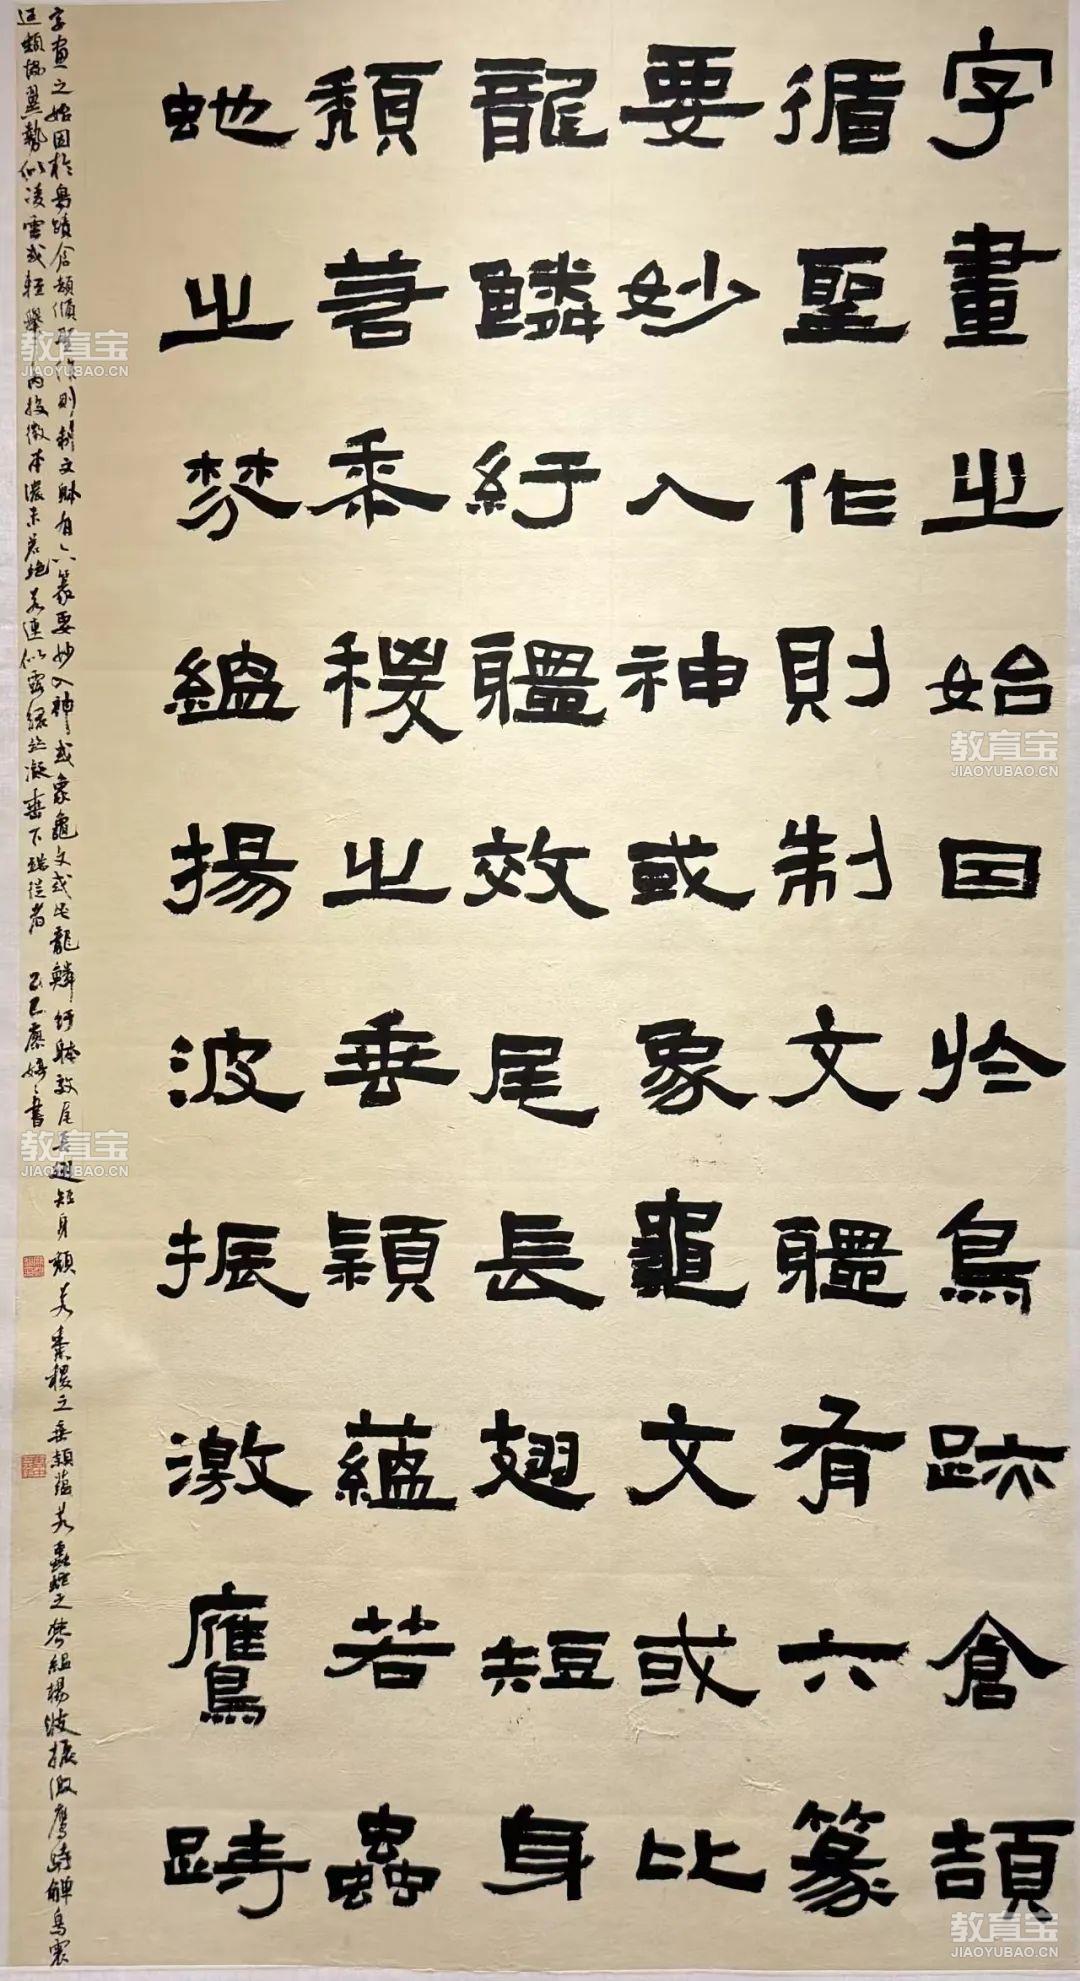 字畫之始因於鳥跡倉頡
循聖作則制文體有六篆
要妙入神或象龜文或比
龍鱗紆體效尾長翅短身
頹若黍稷之垂穎蘊若蟲
虵之棼縕揚波振激鷹跱
字畫之始因於鳥蹟倉頡循聖作則制文體有六篆要妙入神或象龜文或比龍鱗紆體效尾長翅短身頹若黍稷之垂穎蘊若蟲蛇之棼縕揚波振激鷹跱鳥震
延頸協翼勢似凌雲或輕舉內投微本濃末若絕若連似露緣絲凝垂下端從者 乙巳書
教育宝
JIAOYUBAO.CN
教育宝
JIAOYUBAO.CN
教育宝
JIAOYUBAO.CN
教育宝
JIAOYUBAO.CN